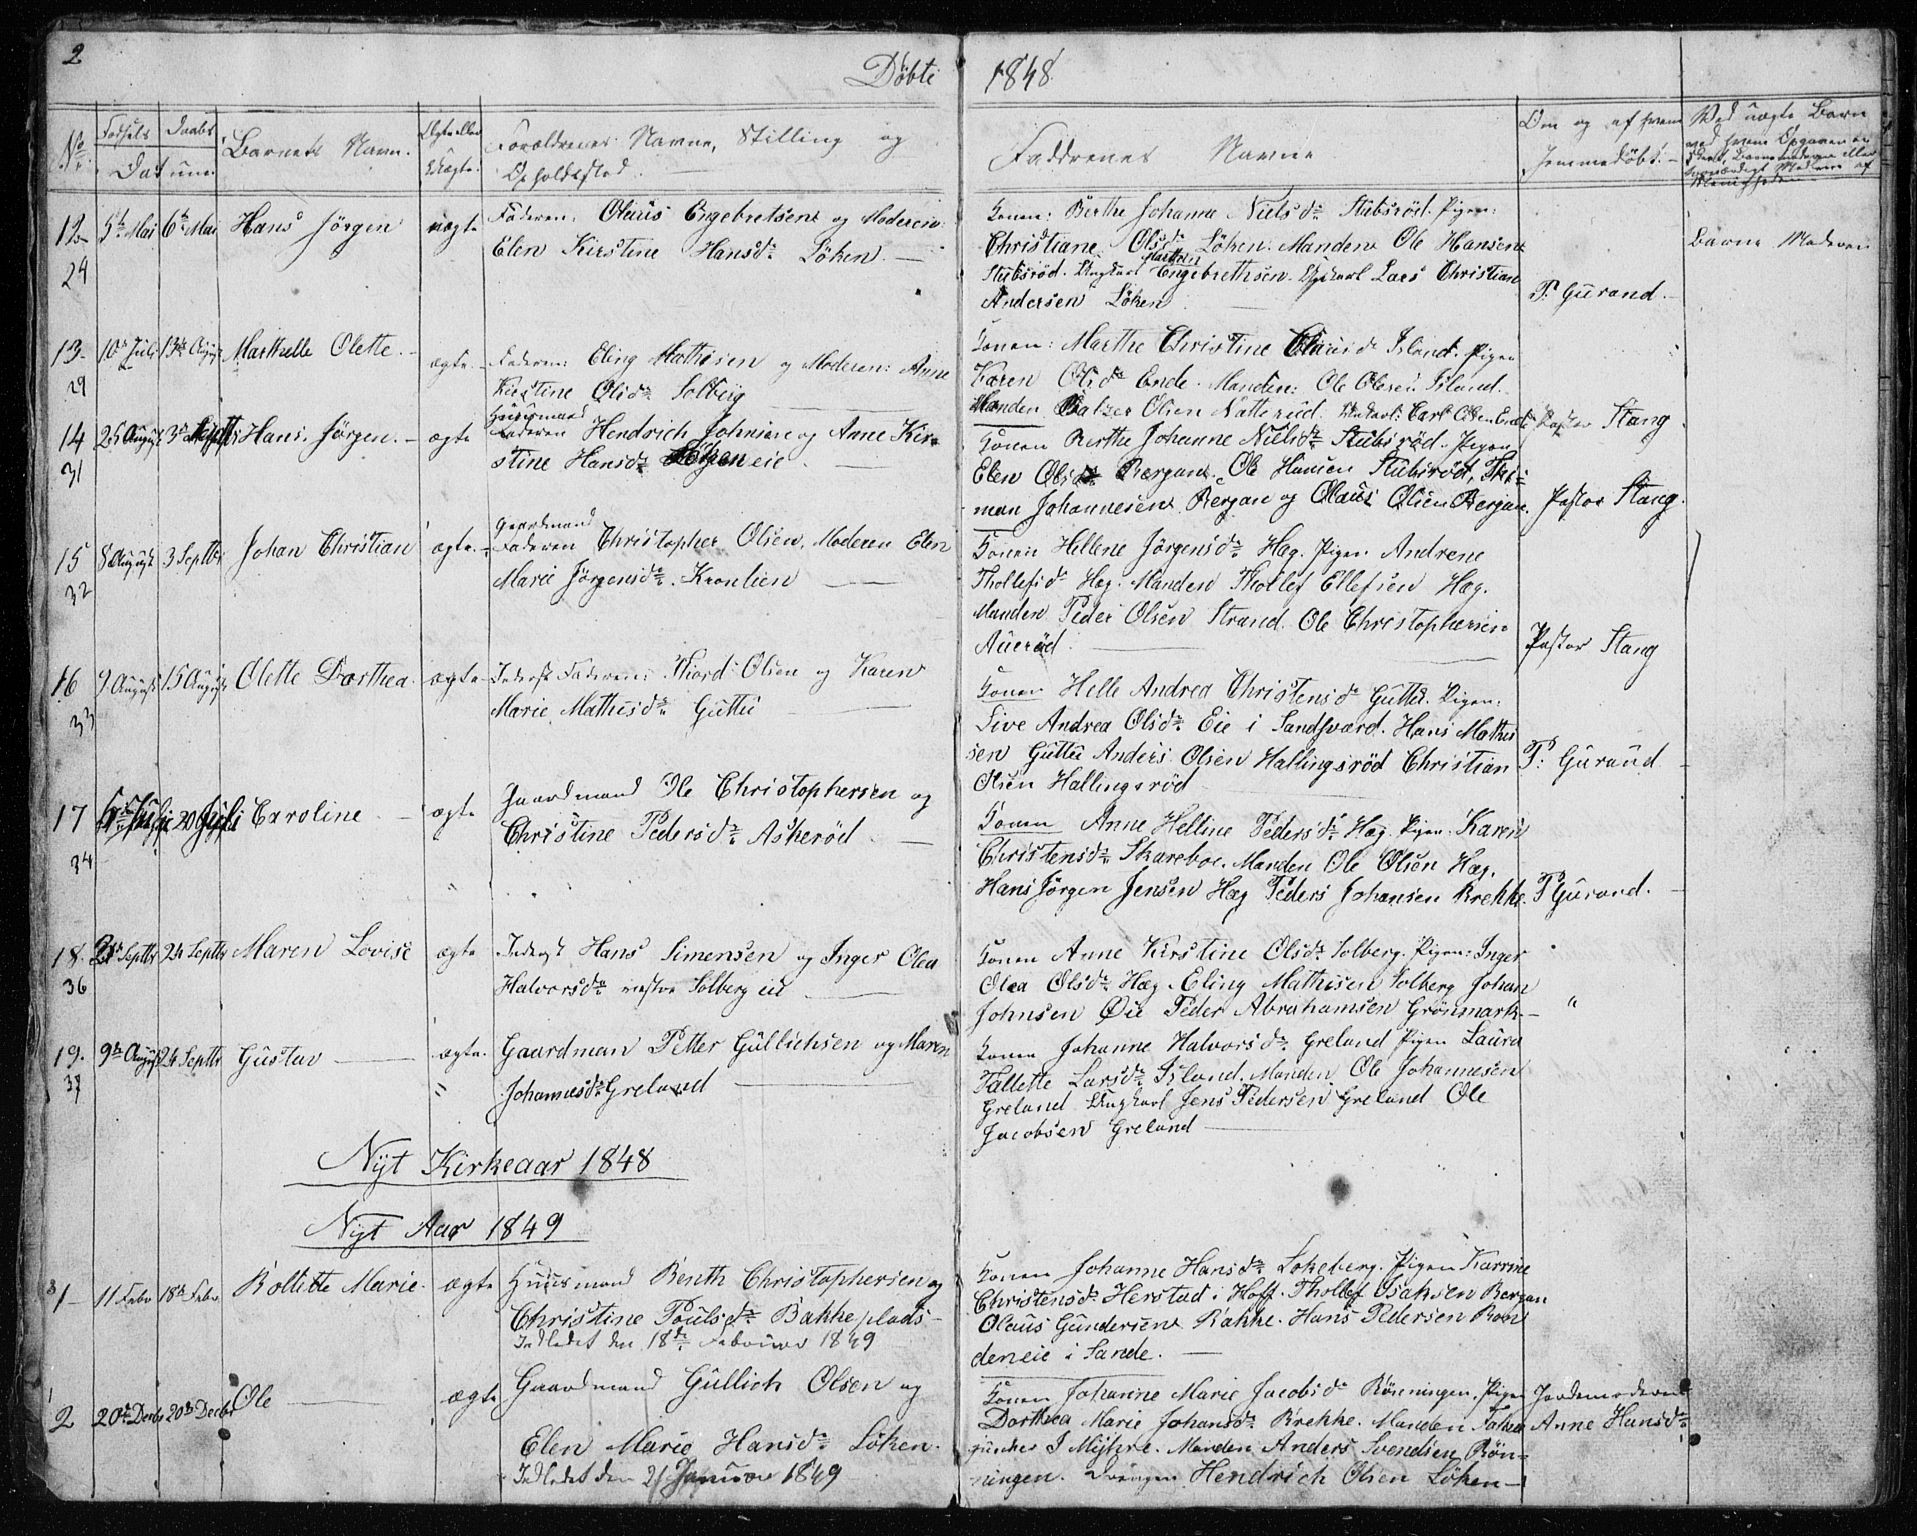 2
Döbte 1848
No. Födsels Daabs Datum. Barnets Navn. Ægte eller Uægte. Forældrenes Navne, Stilling og Opholdssted. Faddrenes Navne Om og af hvem hjemmedöbt. Ved uægte Barn
12 5te Mai 6te Mai Hans Jörgen uægte Faderen: Olaus Engebretsen og Moderen:
24 Elen Kirstine Hansdr Löken.
Konen: Berthe Johanne Nielsdr Stubsröd. Pigen:
Christiane Olsdr Löken. Manden Ole Hansen
Stubsröd. Ungkarl Martin Engebrethsen. Ungkarl Lars Christian
Andersen Löken
P: Gurand.
Barne Moderen
13 10de Juli 13de August Marthelle Olette. ægte Faderen: Eling Mathisen og Moderen: Anne
29 Kirstine Olsdr Solbeig
Konen: Marthe Christine Clausdr Island. Pigen
Karen Olsdr Ende. Manden: Ole Olsen Island.
Manden Balzer Olsen Natterud. Ungkarl: Carl Olsen Ende
Pastor Stang
14 25 August 3 Septbr Hans Jörgen. ægte Huusmand Faderen Hendrich Johnsen og Anne Kir-
31 stine Hansdr eie
Konen Berthe Johanne Nielsdr Stubsröd. Pigen
Elen Olsdr Bergan. Ole Hansen Stubsröd, Thi-
man Johannesen Bergan og Olaus Olsen Bergan.
Pastor Stang.
15 8 August 3 Septbr Johan Christian ægte. Gaardmand Faderen Christopher Olsen. Moderen Elen
32 Marie Jörgensdr. Kronlien
Konen Hellene Jörgensdr Hæg. Pigen Andrene
Thollefsdr Hæg. Manden Thollef Ellefsen Hæg.
Manden Peder Olsen Strand. Ole Christophersen
Aueröd
Pastor Stang
16 9 August 15 August Olette Dorthea. ægte Inderst Faderen: Thord Olsen og Karen
33 Marie Mathisdr Guttu
Konen Helle Andrea Christensdr Guttu. Pigen:
Sive Andrea Olsdr Eie i Sandsværd. Hans Mathi
sen Guttu Anders Olsen Hallingsröd Christian
Olsen Hallingsröd
P: Gurand
17 20 Juli Caroline ægte Gaardmand Ole Christophersen og
34 Christine Pedersdr Askeröd
Konen Anne Helline Pedersdr Hæg. Pigen. Karen
Christensdr Skareboe. Manden Ole Olsen Hæg.
Hans Jörgen Jensen Hæg Peders Johansen Brekke.
P Gurand.
18 Septbr 24 Septbr Maren Lovise ægte Inderst Hans Simensen og Inger Olea
36 Halvorsdr vestre Solberg eie
Konen Anne Kirstine Olsdr Solberg. Pigen: Inger
Olea Olsdr Hæg. Eling Mathisen Solberg Johan
Johnsen Öie Peder Abrahamsen Grönmark
"
19. 9de August 24 Septbr Gustav ægte. Gaardman Petter Gullichsen og Maren
37 " Johannesdr Greland
Konen Johanne Halvorsdr Greland Pigen Laura
Tallette Larsdr Island. Manden Ole Johannesen
Greland Ungkarl Jens Pedersen Greland Ole
Jacobsen Greland
Nyt Kirkeaar 1848
Nyt Aar 1849
1 11 Febr 18de Febr. Boltette Marie. ægte Huusmand Benth Christophersen og
Christine Poulsdr Bakke plads
Indledet den 18de Februar 1849
Konen Johanne Hansdr Lokeberg. Pigen Karrine
Christensdr Herstad i Hoff. Thollef Isaksen Bergan
Olaus Gundersen Bakke. Hans Pedersen Ron
deneie i Sande.
2 20de Decbr 20de Decbr Ole ægte Gaardmand Gullich Olsen og
Elen Marie Hansdr Löken.
Indledet den 21 Januar 1849
Konen Johanne Marie Jacobsdr Rönningen. Pigen
Dorthea Marie Johansdr Brekke. Manden
I Myhre. Manden Anders Svendsen Rön-
ningen. Drengen Hendrich Olsen Löken
Jordemoderen
Anne Hansdr